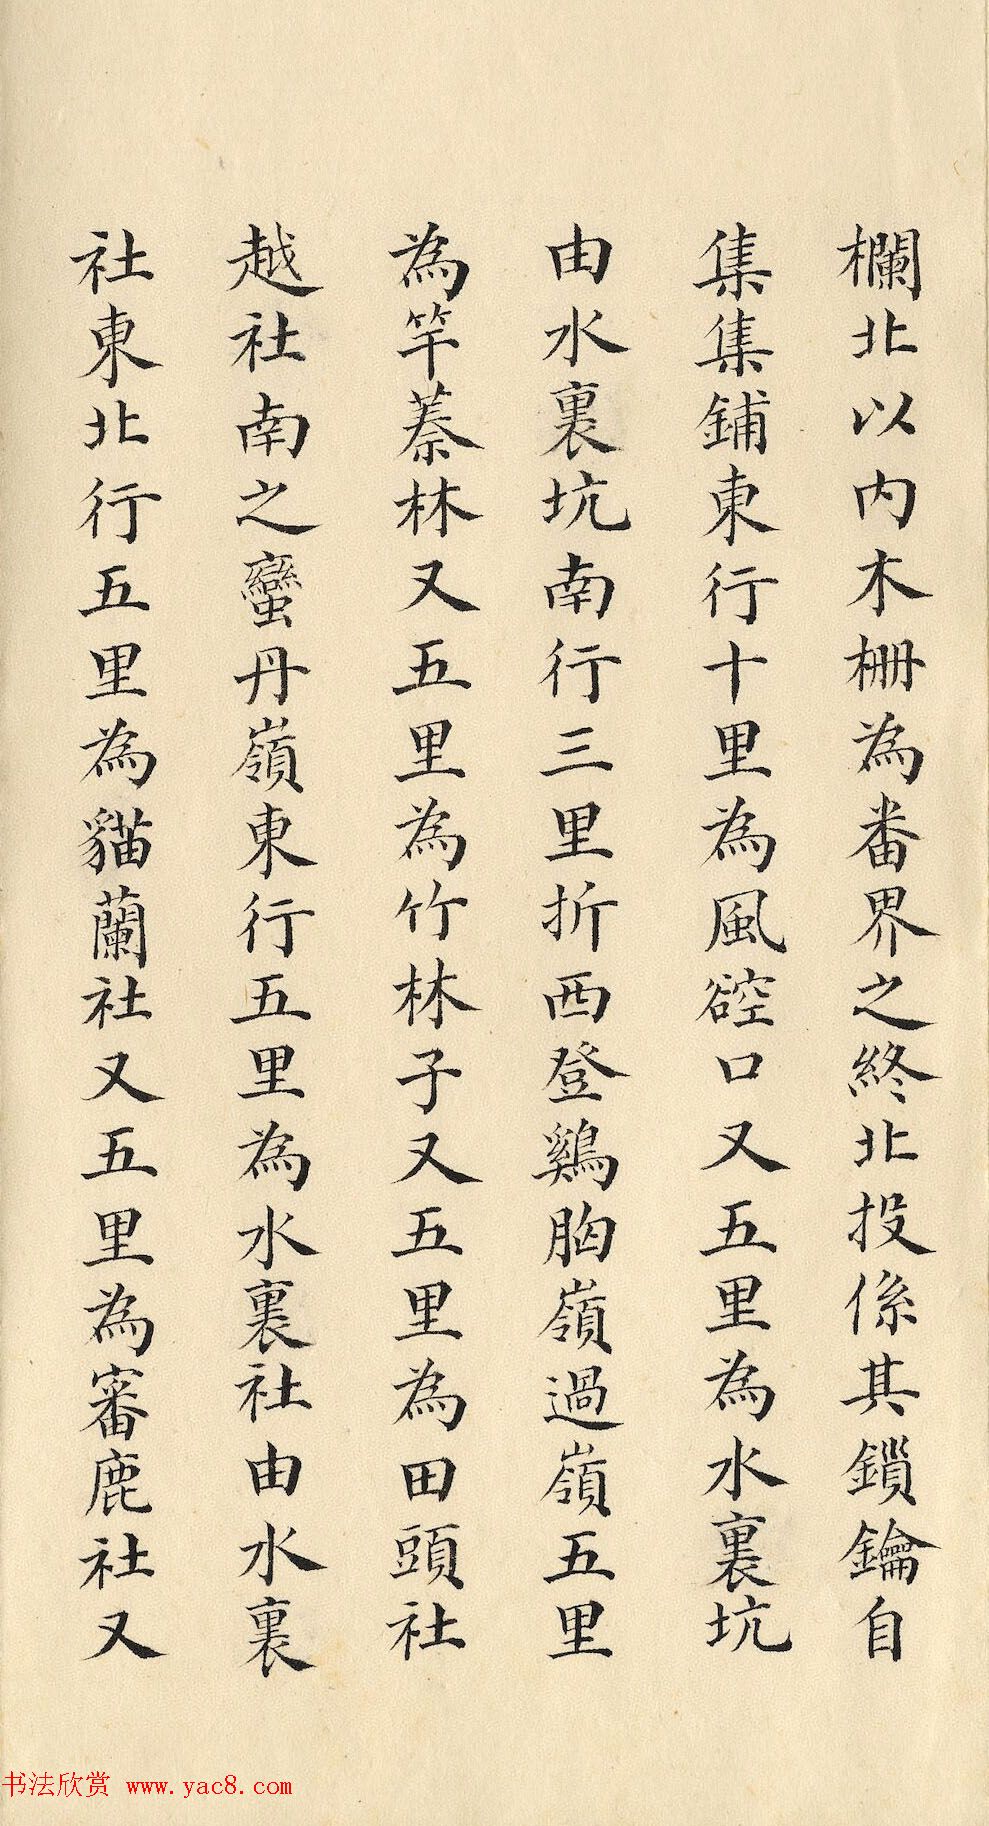 欄北以内木柵為番界之終北投係其鎖鑰自
集集鋪東行十里為風硿口又五里為水裏坑
由水裏坑南行三里折西登鷄胸嶺過嶺五里
為竿蓁林又五里為竹林子又五里為田頭社
越社南之蠻丹嶺東行五里為水裏社由水裏
社東北行五里為貓蘭社又五里為審鹿社又
书法欣赏 www.yac8.com